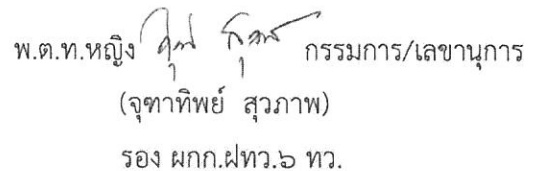 พ.ต.ท.หญิง กรรมการ/เลขานุการ
(จุฑาทิพย์ สุวภาพ)
รอง ผกก.ฝทว.๖ ทว.